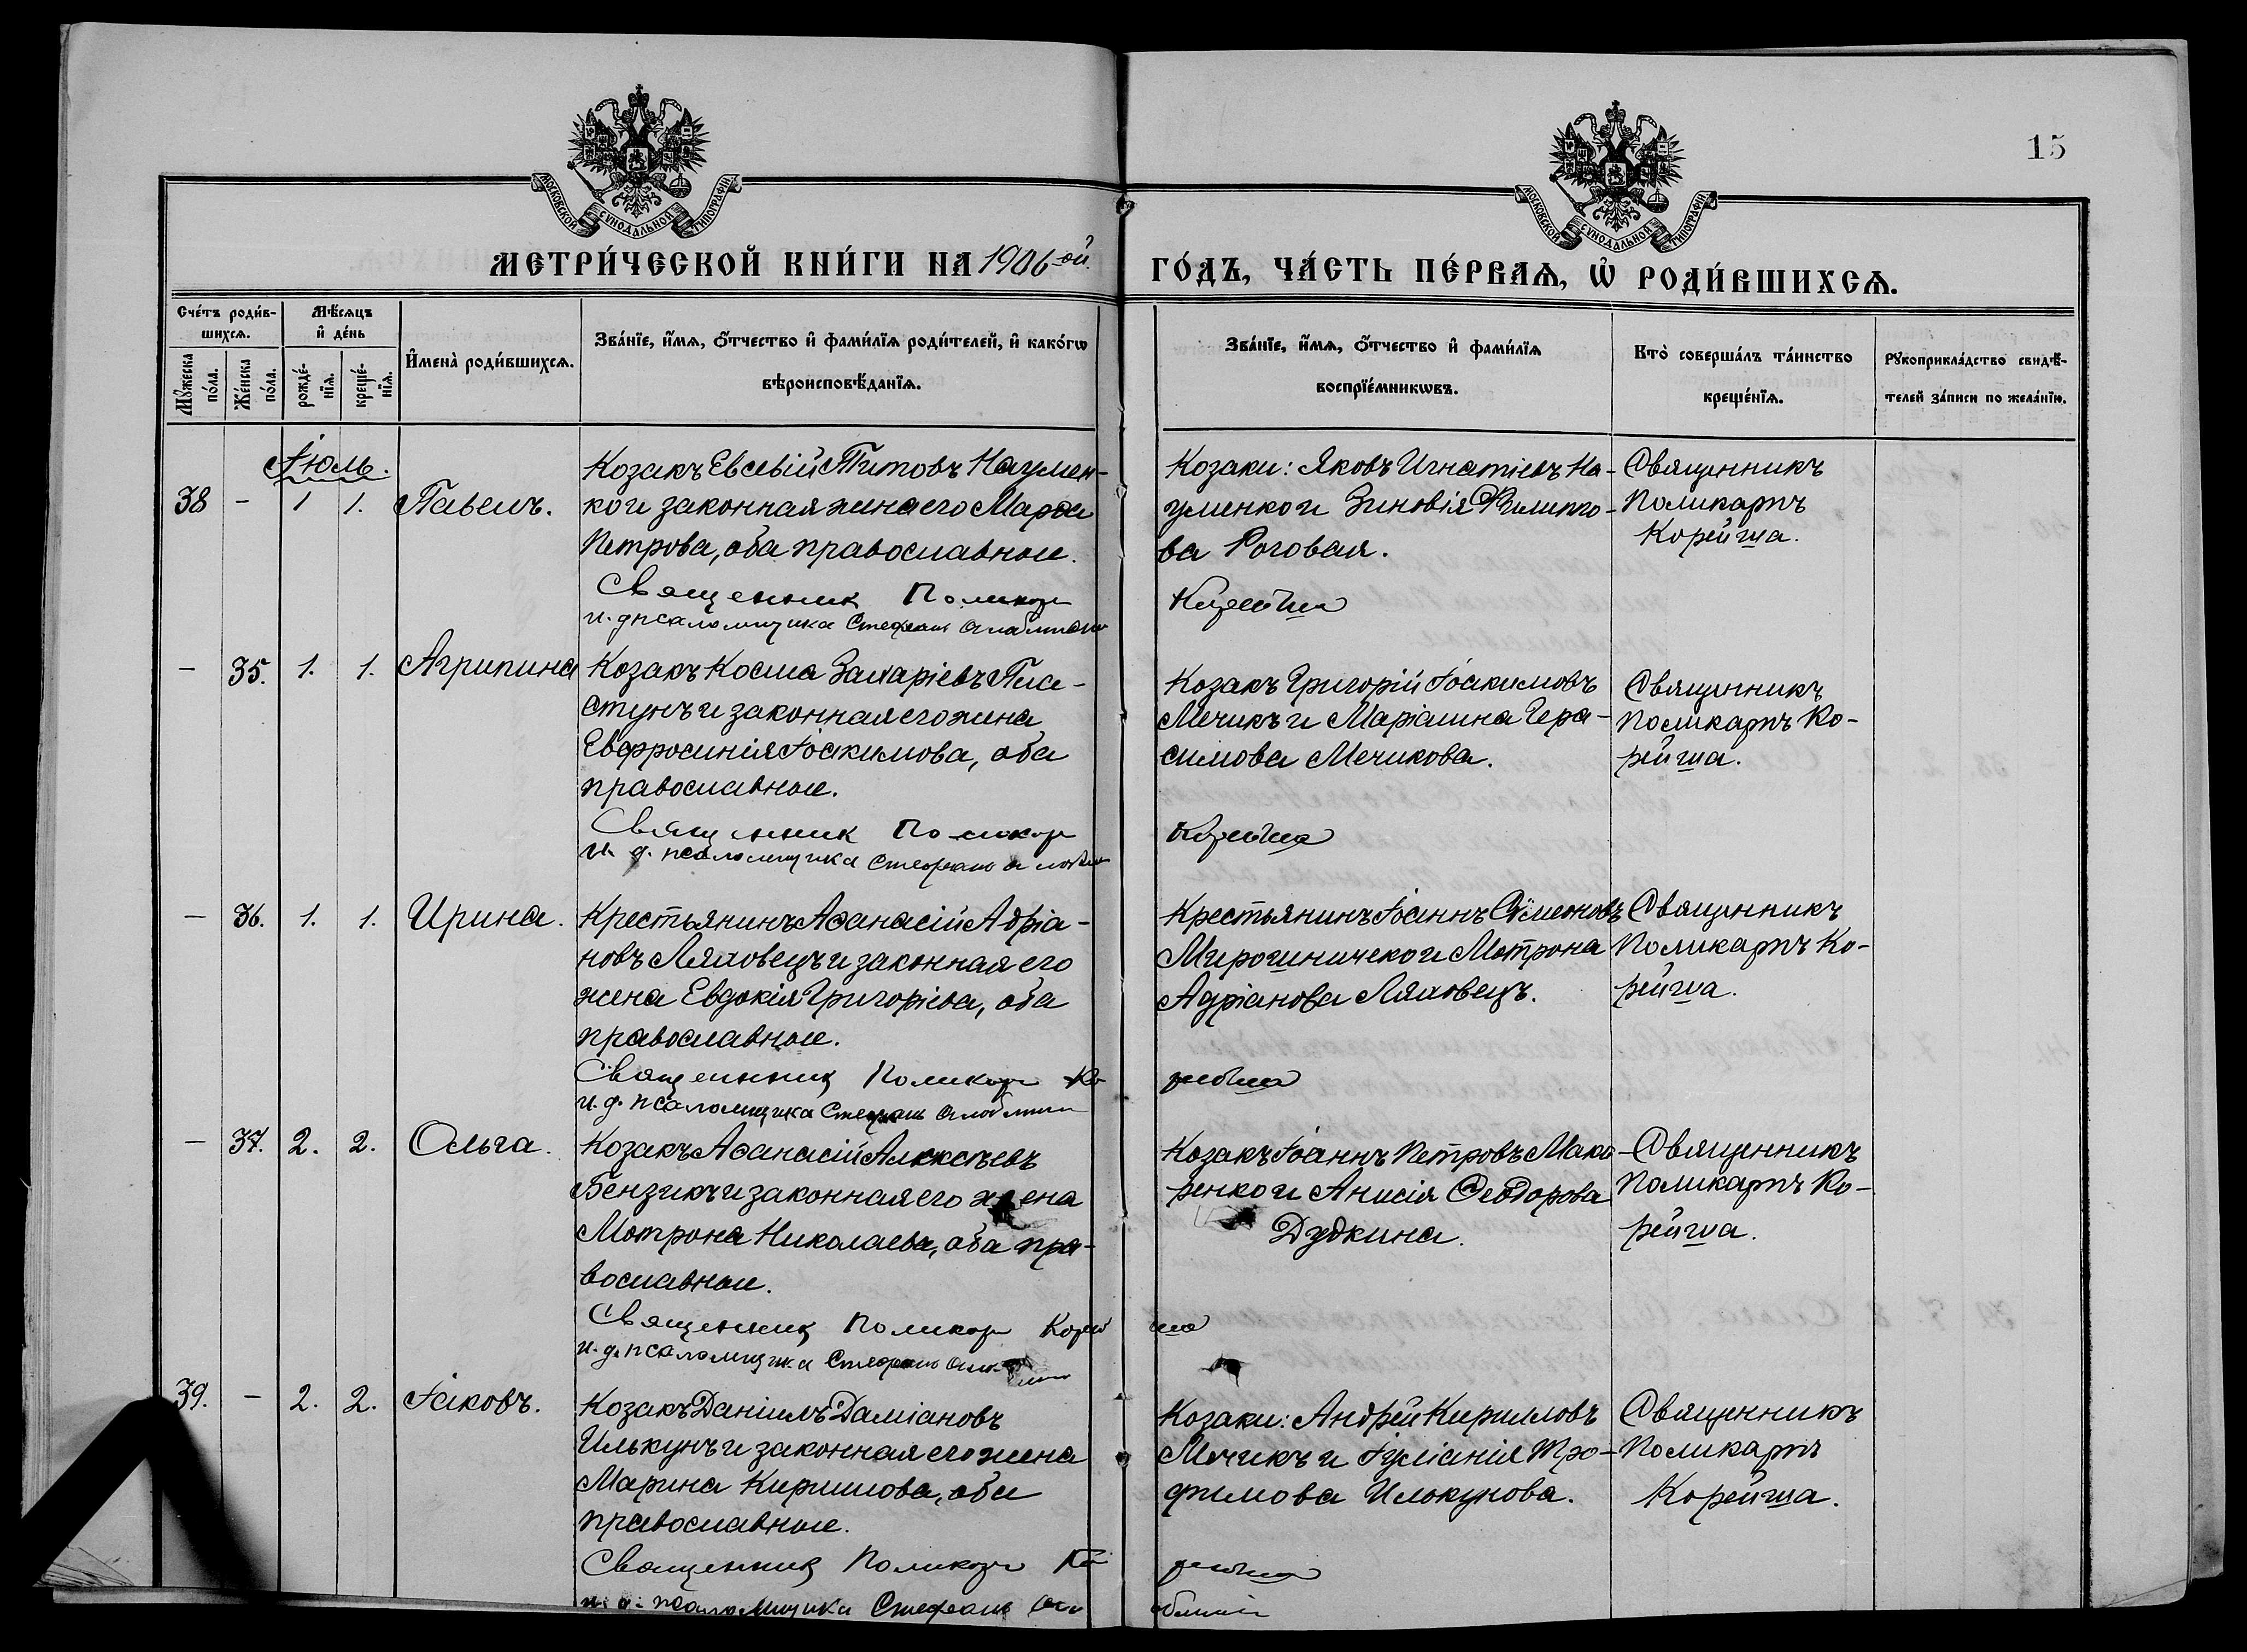 15
МОСКОВСКОЙ СѴНОДАЛЬНОЙ ТИПОГРАФІИ
МОСКОВСКОЙ СѴНОДАЛЬНОЙ ТИПОГРАФІИ
МЕТРИ́ЧЕСКОЙ КНИ́ГИ НА 1906-ой
ГО́ДЪ, ЧА́СТЬ ПЕ́РВАѦ, Ѡ҆ РОДИ́ВШИХСѦ.
Сче́тъ роди́в-
шихсѧ.
Мꙋ́жеска по́ла.
Же́нска по́ла.
Мѣ́сѧцъ
и҆ де́нь
рожде́-
нїѧ.
креще́-
нїѧ.
И҆мена̀ роди́вшихсѧ.
Зва́нїе, и҆́мѧ, ѻ҆́тчество и҆ фами́лїѧ роди́телей, и҆ како́гѡ
вѣроисповѣ́данїѧ.
Зва́нїе, и҆́мѧ, ѻ҆́тчество и҆ фами́лїѧ
воспрїе́мникѡвъ.
Кто̀ соверша́лъ та́инство
креще́нїѧ.
Рꙋкоприкла́дство свидѣ́-
телей за́писи по жела́нїю.
Іюль.
38 - 1 1. Павелъ.
Козакъ Евсевій Титовъ Наумен-
ко и законная жена его Марѳа
Петрова, оба православные.
Священник Поликарп
и. д. псаломщика Стефанъ
Козаки: Яковъ Игнатіевъ На-
уменко и Зиновія Филипо-
ва Роговая.
Корейша
Священникъ
Поликарпъ
Корейша.
- 35. 1. 1. Агрипина
Козакъ Косма Захаріевъ Пла-
стунъ и законная его жена
Евфросинія Іоакимова, оба
православные.
Священник Поликарп
и. д. псаломщика Стефанъ
Козакъ Григорій Іоакимовъ
Мечикъ и Маріамна Гера-
симова Мечикова.
Корейша
Священникъ
Поликарпъ Ко-
рейша.
- 36. 1. 1. Ирина.
Крестьянинъ Аѳанасій Адріа-
новъ Ляховецъ и законная его
жена Евдокія Григоріева, оба
православные.
Священник Поликарп Ко
и. д. псаломщика Стефанъ
Крестьянинъ Іоаннъ Сѵмеоновъ
Мирошниченко и Мотрона
Адріанова Ляховецъ.
рейша
Священникъ
Поликарпъ Ко-
рейша.
- 37. 2. 2. Ольга.
Козакъ Аѳанасій Алексѣевъ
Бензикъ и законная его жена
Мотрона Николаева, оба пра-
вославные.
Священник Поликарп Корей
и. д. псаломщика Стефанъ
Козакъ Іоаннъ Петровъ Мака-
ренко и Анисія Ѳеодорова
Дудкина.
ша
Священникъ
Поликарпъ Ко-
рейша.
39. - 2. 2. Іаковъ.
Козакъ Даніилъ Даміановъ
Илькунъ и законная его жена
Марина Кириллова, оба
православные.
Священник Поликарп Ко
и. д. псаломщика Стефанъ
Козаки: Андрей Кирилловъ
Мечикъ и Іуліанія Тро-
фимова Илькунова.
рейша
Священникъ
Поликарпъ
Корейша.